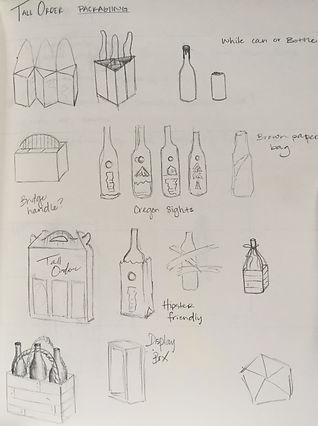 TALL ORDER PACKAGING
While can or Bottle
Brown paper
bag
Bridge
handle?
Oregon Sights
Tall
Order
Hipster
friendly
Display
Box